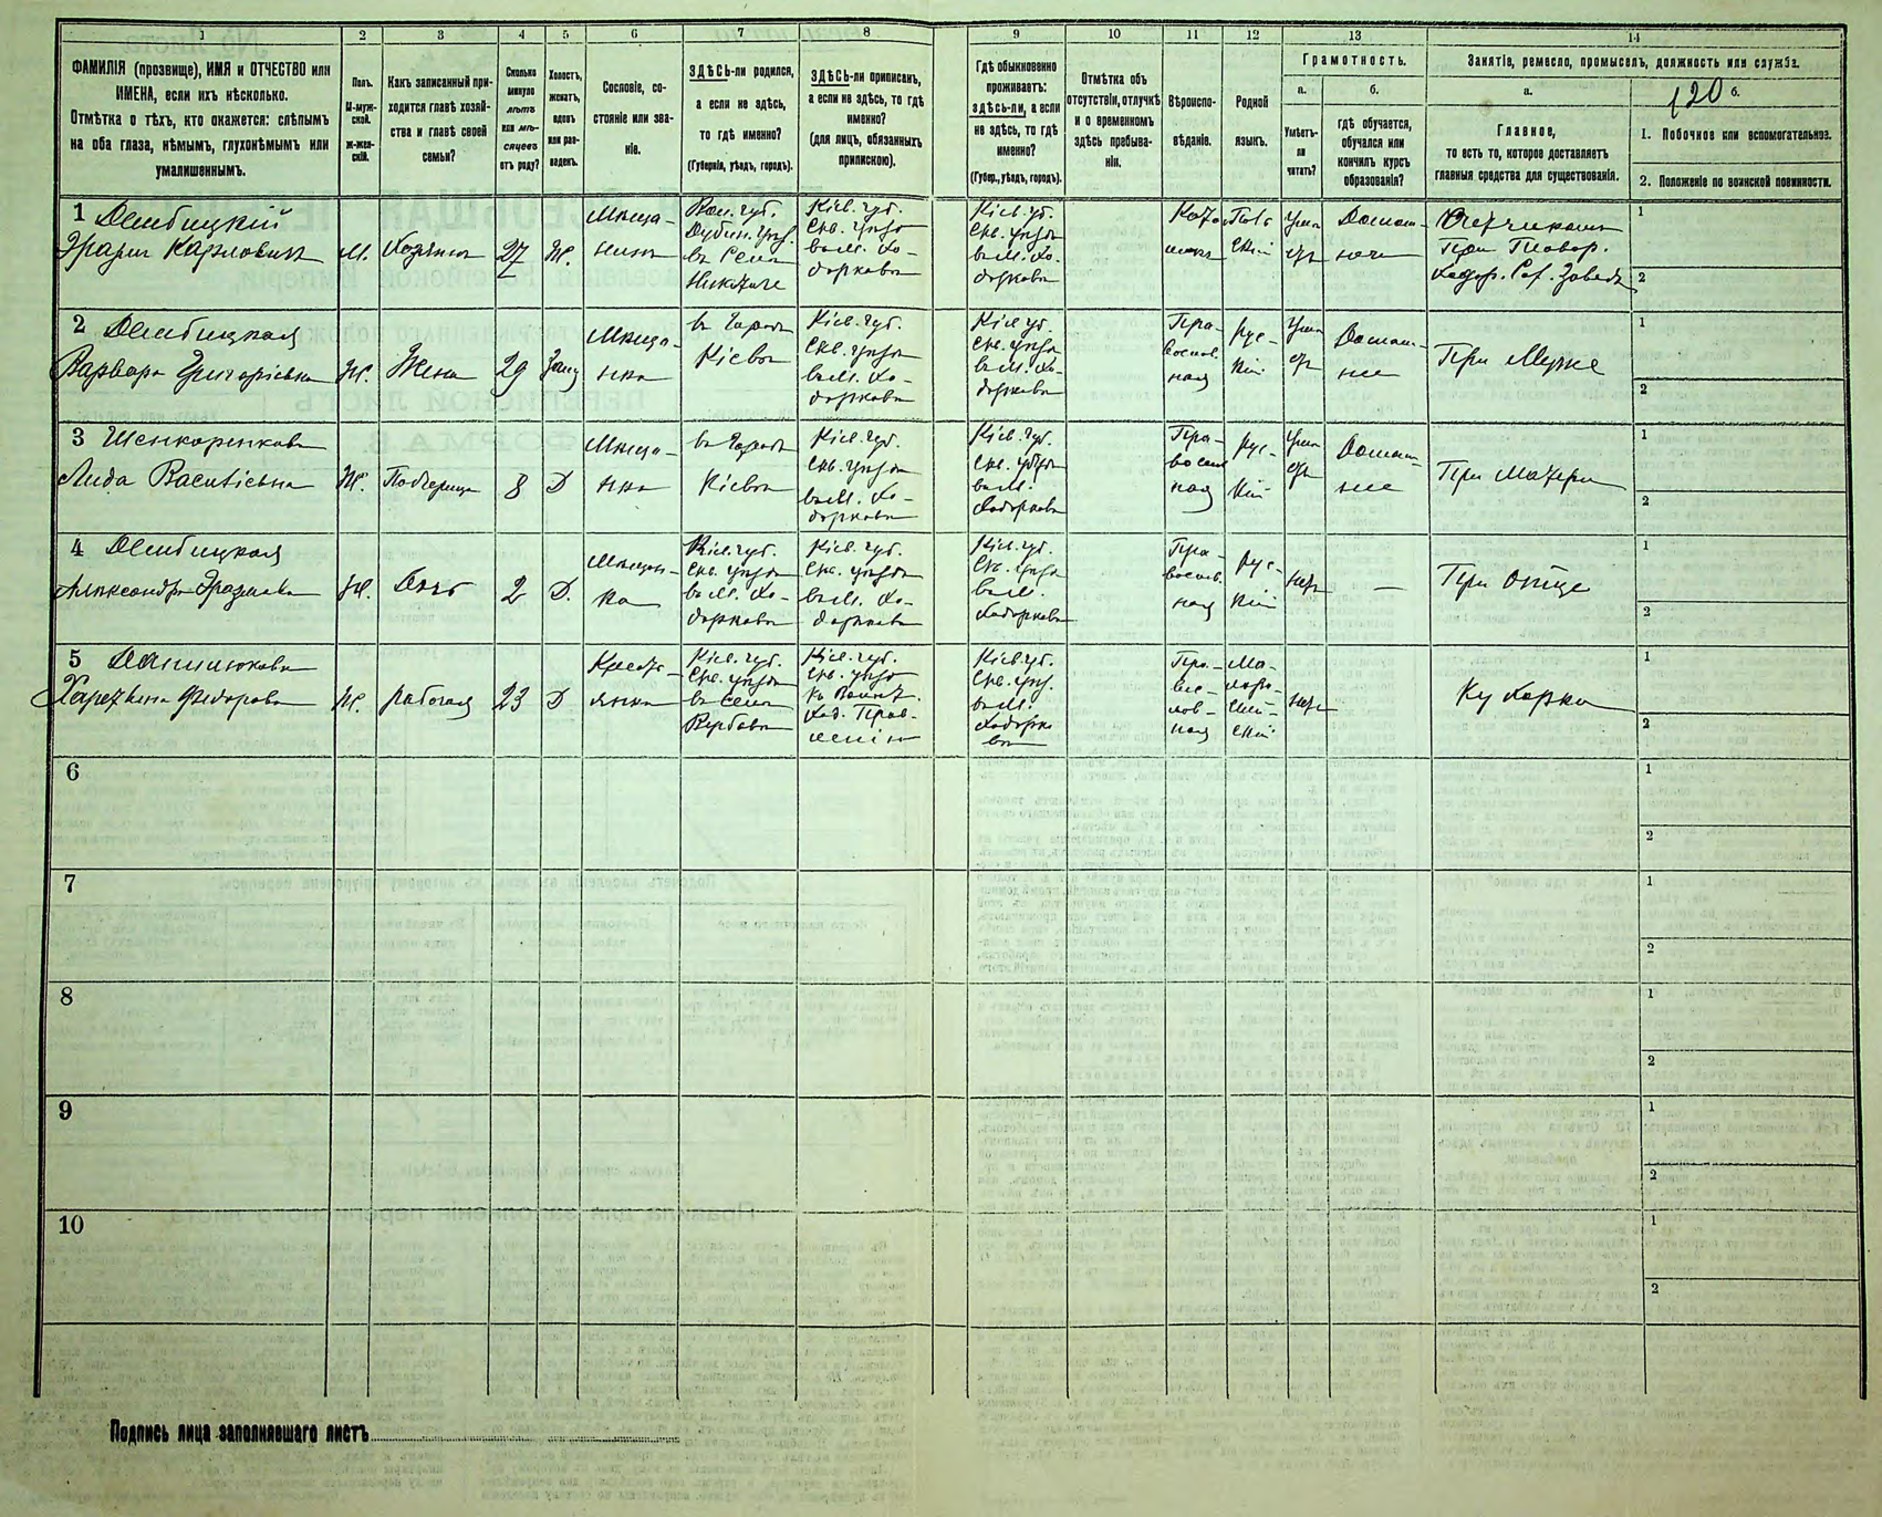 1
ФАМИЛІЯ (прозвище), ИМЯ и ОТЧЕСТВО или
ИМЕНА, если ихъ нѣсколько.
Отмѣтка о тѣхъ, кто окажется: слѣпымъ
на оба глаза, нѣмымъ, глухонѣмымъ или
умалишеннымъ.
2
Полъ.
М-муж-
ской.
Ж-жен-
скій.
3
Какъ записанный при-
ходится главѣ хозяй-
ства и главѣ своей
семьи?
4
Сколько
минуло
лѣтъ
или мѣ-
сяцевъ
отъ роду?
5
Холостъ,
женатъ,
вдовъ
или раз-
веденъ.
6
Сословіе, со-
стояніе или зва-
ніе.
7
ЗДѢСЬ-ли родился,
а если не здѣсь,
то гдѣ именно?
(Губернія, уѣздъ, городъ).
8
ЗДѢСЬ-ли приписанъ,
а если не здѣсь, то гдѣ
именно?
(для лицъ, обязанныхъ
припискою).
9
Гдѣ обыкновенно
проживаетъ:
здѣсь-ли, а если
не здѣсь, то гдѣ
именно?
(Губер., уѣздъ, городъ).
10
Отмѣтка объ
отсутствіи, отлучкѣ
и о временномъ
здѣсь пребыва-
ніи.
11
Вѣроиспо-
вѣданіе.
12
Родной
языкъ.
13
Грамотность.
а.
Умѣетъ-
ли
читать?
б.
гдѣ обучается,
обучался или
кончилъ курсъ
образованія?
14
Занятіе, ремесло, промыселъ, должность или служба.
а.
Главное,
то есть то, которое доставляетъ
главныя средства для существованія.
120 б.
1. Побочное или вспомогательное.
2. Положеніе по воинской повинности.
1 Дембицкій
Эразмъ Карловичъ
М.
Хозяинъ
27
Ж.
Мѣща-
нинъ
Вол. губ.
Дубин. уѣз.
въ селѣ
Кіев. губ.
Скв. уѣзда
въ М. Хо-
дорковѣ
Кіев. гу.
Скв. уѣзда
въ М. Хо-
дорковѣ
Поль
скій
Домаш-
нее
При
1
2
2 Дембицкая
Варвара Григорьевна
Ж.
Жена
29
Мѣща-
нка
въ городѣ
Кіевѣ
Кіев. губ.
Скв. уѣзда
въ М. Хо-
дорковѣ
Кіев гу.
Скв. уѣзда
въ М. Хо-
дорковѣ
Пра-
вослав.
ная
Рус-
кій
Домаш-
нее
При Мужѣ
1
2
3
Лида Васильевна
Ж.
Подчерица
8
Д
Мѣща-
нка
въ городѣ
Кіевѣ
Кіев. губ.
Скв. уѣзда
въ М. Хо-
дорковѣ
Кіев. гу.
Скв. уѣзда
въ М.
Ходорковѣ
Пра-
вослав
ная
Рус-
кій
Домаш-
нее
При Матери
1
2
4 Дембицкая
Александра Эразмова
Ж.
Дочь
2
Д.
Мѣщан-
ка
Кіев. губ.
Скв. уѣзда
въ М. Хо-
дорковѣ
Кіев. губ.
Скв. уѣзда
въ М. Хо-
дорковѣ
Кіев. гу.
Скв. уѣзда
въ М.
Ходорковѣ
Пра-
вослав.
ная
Рус-
кій
—
При отце
1
2
5
Федорова
Ж.
работая
23
Д
Кресть-
янка
Кіев. губ.
Скв. уѣзда
въ селѣ
Вербовѣ
Кіев. губ.
Скв. уѣзда
Кіев. гу.
Скв. уѣз.
въ М.
Ходорко
вѣ
Пра-
вос-
лав-
ная
Ма-
лорос-
сій-
скій
Кухарка
1
2
6
1
2
7
1
2
8
1
2
9
1
2
10
1
2
Подпись лица заполнявшаго листъ